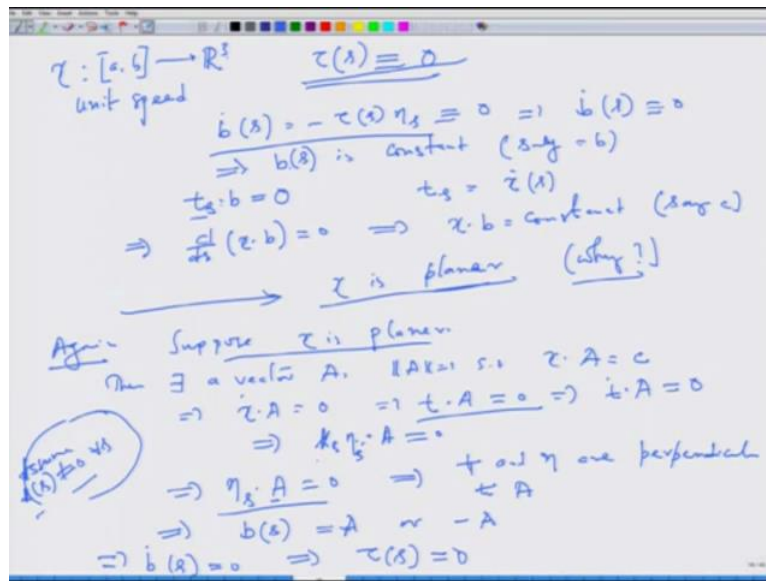 γ : [a, b] → ℝ³    τ(s) ≡ 0
unit speed
ḃ(s) = − τ(s) η_s ≡ 0 ⇒ ḃ(s) ≡ 0
⇒ b(s) is constant (say = b)
t_s · b = 0    t_s = γ̇(s)
⇒ d/ds (γ · b) = 0 ⇒ γ · b = constant (say c)
⟶ γ is planar (why?)
Again Suppose γ is planar.
Then ∃ a vector A, ‖A‖=1 s.t. γ · A = c
⇒ γ̇ · A = 0 ⇒ t · A = 0 ⇒ ṫ · A = 0
⇒ k_s η_s · A = 0
Assume
k(s) ≠ 0 ∀s
⇒ η_s · A = 0 ⇒ t and η are perpendicular
t A
⇒ b(s) = A or − A
⇒ ḃ(s) = 0 ⇒ τ(s) = 0